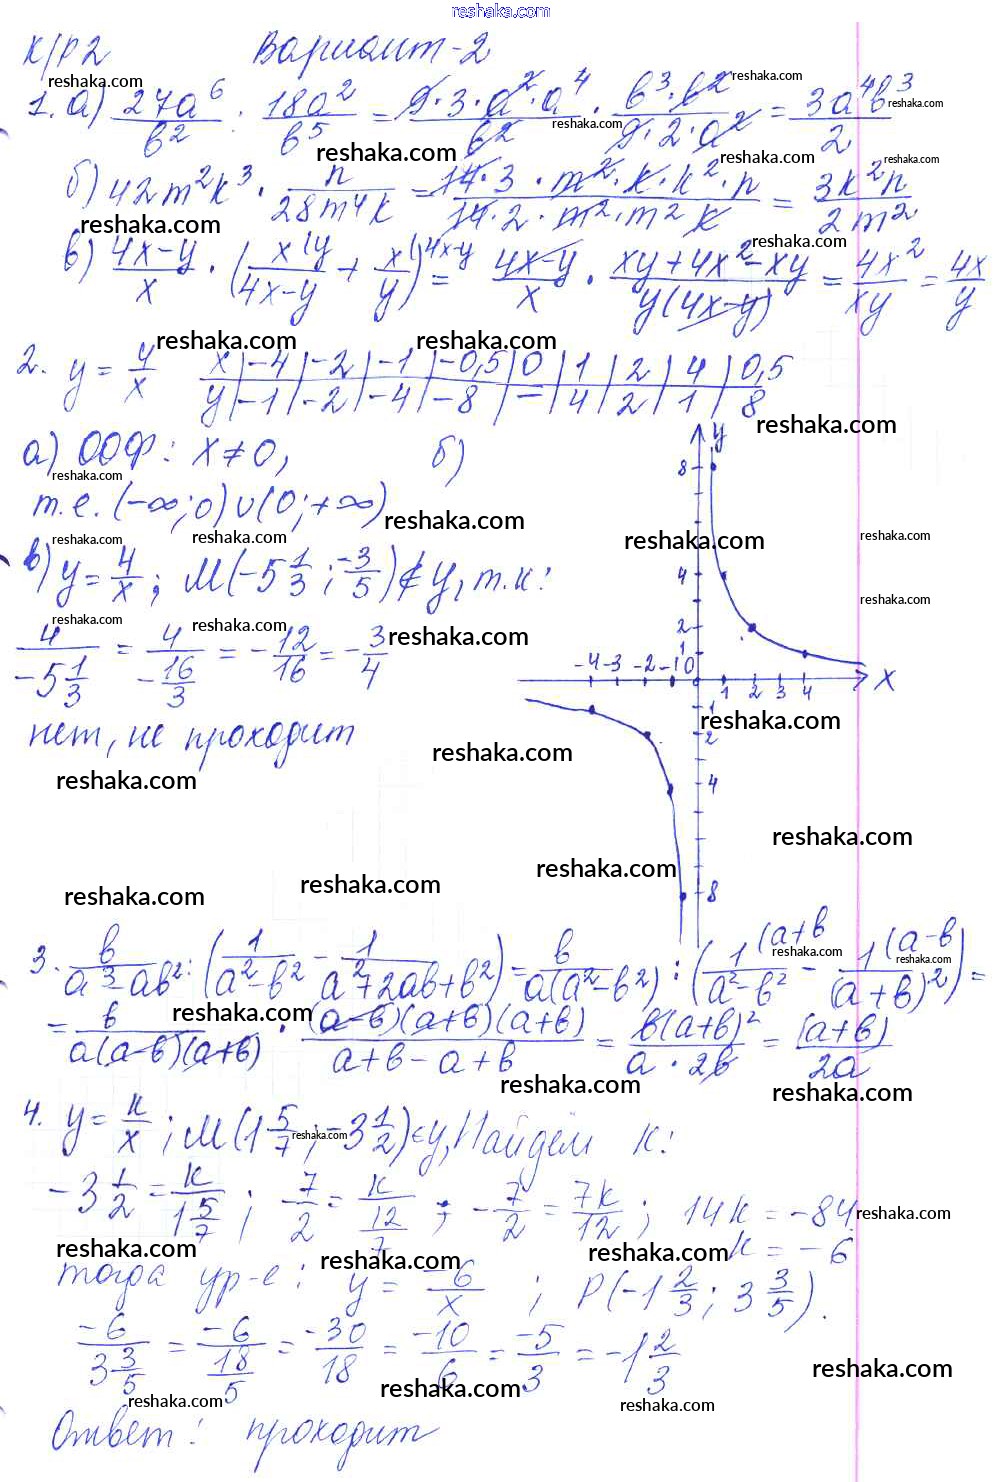 reshaka.com
К/Р 2 Вариант-2
1. а) 27a^6/b^2 : 18a^2/b^5 = 9·3·a^2·a^4/b^2 · b^3·b^2/9·2·a^2 = 3a^4b^3/2
б) 42m^2k^3 · n/28m^4k = 14·3·m^2·k·k^2·n/14·2·m^2·m^2 k = 3k^2n/2m^2
в) 4x-y/x · (x(y/4x-y + x(4x-y/y) = 4x-y/x · xy+4x^2-xy/y(4x-y) = 4x^2/xy = 4x/y
2. y = 4/x x | -4 | -2 | -1 | -0,5 | 0 | 1 | 2 | 4 | 0,5
y | -1 | -2 | -4 | -8 | - | 4 | 2 | 1 | 8
а) ООФ: x≠0, б)
т.е. (-∞;0)∪(0;+∞)
в) y=4/x; M(-5 1/3; -3/5)∉y, т.к:
4/-5 1/3 = 4/-16/3 = -12/16 = -3/4
нет, не проходит
y
8
4
2
1
-4 -3 -2 -1 0 1 2 3 4 x
1
2
4
8
3. b/a^3-ab^2 : (1/a^2-b^2 - 1/a^2+2ab+b^2) = b/a(a^2-b^2) : (1(a+b/a^2-b^2 - 1(a-b)/(a+b)^2) =
= b/a(a-b)(a+b) · (a-b)(a+b)(a+b)/a+b-a+b = b(a+b)^2/a·2b = (a+b)/2a
4. y=k/x; M(1 5/7; -3 1/2)∈y, Найдем k:
-3 1/2 = k/1 5/7; -7/2 = k/12/7; -7/2 = 7k/12; 14k = -84
k = -6
тогда ур-е: y = -6/x; P(-1 2/3; 3 3/5).
-6/3 3/5 = -6/18/5 = -30/18 = -10/6 = -5/3 = -1 2/3
Ответ: проходит